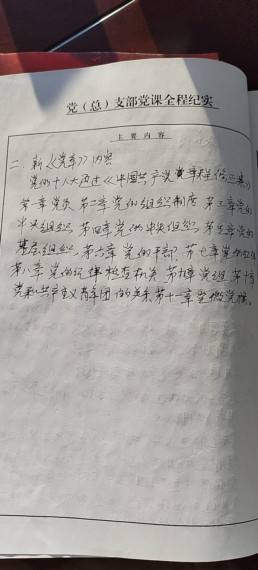 党（总）支部党课全程纪实
主要内容
二、新《党章》内容
党的十八大通过《中国共产党章程修正案》
第一章党员 第二章党的组织制度 第三章党的
中央组织 第四章党的 组织 第五章党的
基层组织 第六章 党的干部 第七章党的纪律
第八章 党的纪律检查机关 第九章党组 第十章
党和共产主义青年团的关系 第十一章党徽党旗。